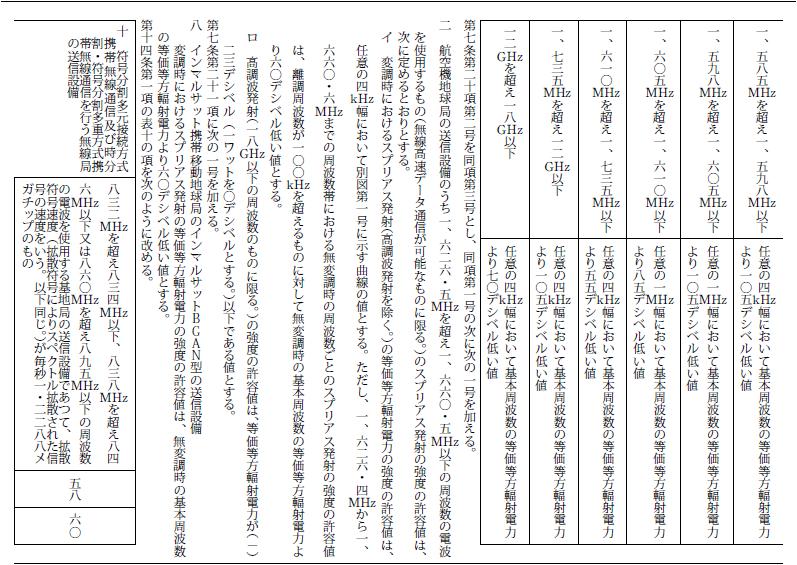 一、五八五MHzを超え一、五九八MHz以下
任意の四kHz幅において基本周波数の等価等方輻射電力
より一〇五デシベル低い値
一、五九八MHzを超え一、六〇五MHz以下
任意の一MHz幅において基本周波数の等価等方輻射電力
より一〇五デシベル低い値
一、六〇五MHzを超え一、六一〇MHz以下
任意の一MHz幅において基本周波数の等価等方輻射電力
より八五デシベル低い値
一、六一〇MHzを超え一、七三五MHz以下
任意の四kHz幅において基本周波数の等価等方輻射電力
より五五デシベル低い値
一、七三五MHzを超え一二GHz以下
任意の四kHz幅において基本周波数の等価等方輻射電力
より一〇五デシベル低い値
一二GHzを超え一八GHz以下
任意の四kHz幅において基本周波数の等価等方輻射電力
より七〇デシベル低い値
第七条第二十項第二号を同項第三号とし、同項第一号の次に次の一号を加える。
二 航空機地球局の送信設備のうち一、六二六・五MHzを超え一、六六〇・五MHz以下の周波数の電波
を使用するもの(無線高速データ通信が可能なものに限る。)のスプリアス発射の強度の許容値は、
次に定めるとおりとする。
イ 変調時におけるスプリアス発射(高調波発射を除く。)の等価等方輻射電力の強度の許容値は、
任意の四kHz幅において別図第一号に示す曲線の値とする。ただし、一、六二六・四MHzから一、
六六〇・六MHzまでの周波数帯における無変調時の周波数ごとのスプリアス発射の強度の許容値
は、離調周波数が一〇〇kHzを超えるものに対して無変調時の基本周波数の等価等方輻射電力よ
り六〇デシベル低い値とする。
ロ 高調波発射(一八GHz以下の周波数のものに限る。)の強度の許容値は、等価等方輻射電力が(－)
二三デシベル(一ワットを〇デシベルとする。)以下である値とする。
第七条第二十一項に次の一号を加える。
八 インマルサット携帯移動地球局のインマルサットBGAN型の送信設備
変調時におけるスプリアス発射の等価等方輻射電力の強度の許容値は、無変調時の基本周波数
の等価等方輻射電力より六〇デシベル低い値とする。
第十四条第一項の表十の項を次のように改める。
十 符号分割多元接続方式
携帯無線通信及び時分
割・符号分割多重方式携
帯無線通信を行う無線局
の送信設備
八三二MHzを超え八三四MHz以下、八三八MHzを超え八四
六MHz以下又は八六〇MHzを超え八九五MHz以下の周波数
の電波を使用する基地局の送信設備であつて、拡散
符号速度(拡散符号によりスペクトル拡散された信
号の速度をいう。以下同じ。)が毎秒一・二二八八メ
ガチップのもの
五八
六〇